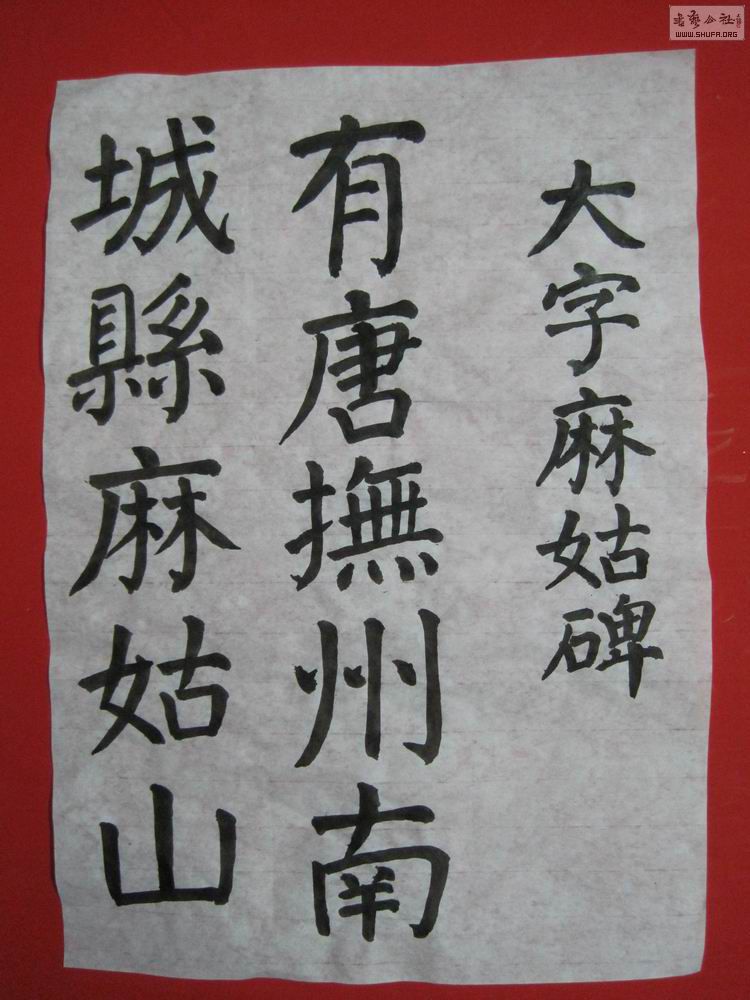 大字麻姑碑
有唐撫州南
城縣麻姑山
WWW.SHUFA.ORG